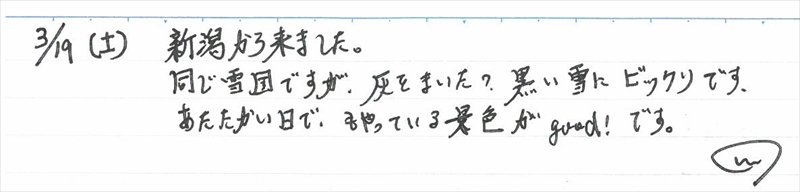 3/19（土） 新潟から来ました。
同じ雪国ですが、灰をまいた？黒い雪にビックリです、
あたたかい日で、もやっている景色がgood！です。